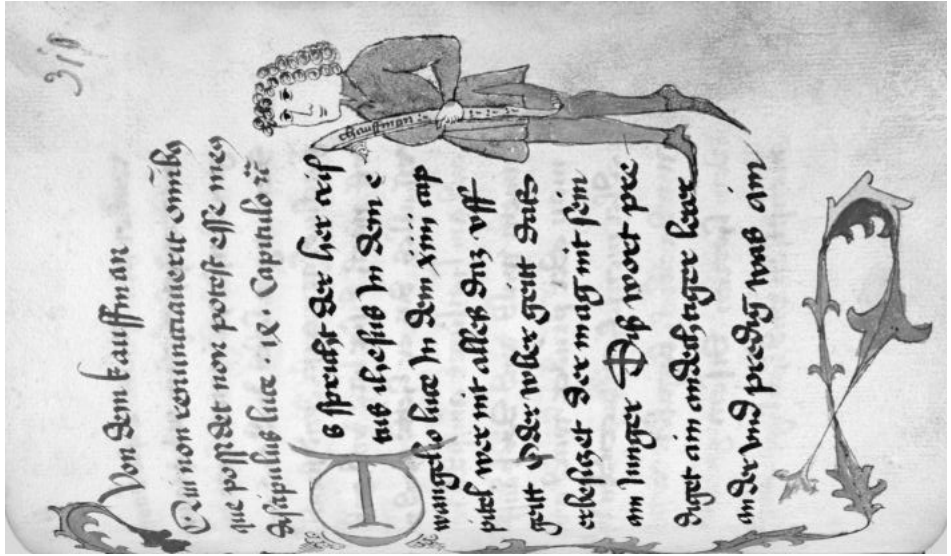 310
Von dem kauffman
Qui non renunciauerit om̄ibꝫ
que possidet non potest esse meꝯ
discipulus luce · ix · Capitulo
chauffman
Es spricht der her cris
tus ihesus In dem e
wangelio luce In dem xiiij cap
pitel wer nit alleß daz vff
geitt yder vber geitt daß
er besiczet der mag nit sein
am Iunger Diß wort pre
diget ain andechtiger
ander vnd predig was ain